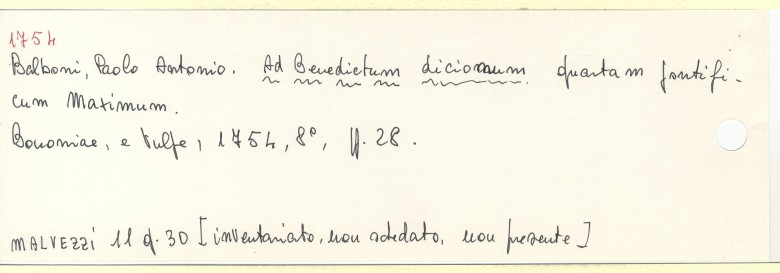 1754
Balboni, Paolo Antonio. Ad Benedictum dicionum quartam pontifi-
cum Maximum.
Bononiae, e Vulpe, 1754, 8°, pp. 28.
MALVEZZI 11 q. 30 [inventariato, non schedato, non presente]